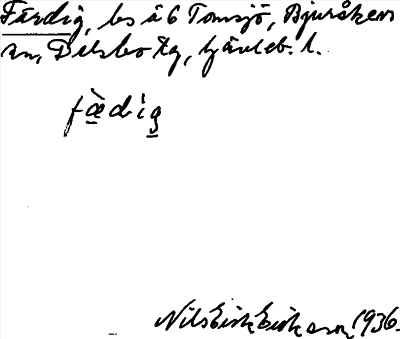 Färdig, bs å 6 Tomsjö, Bjuråkers
sn, Delsbo tg, Gävleb. l.
fæ̀dig
Nils Erik Eriksson 1936.